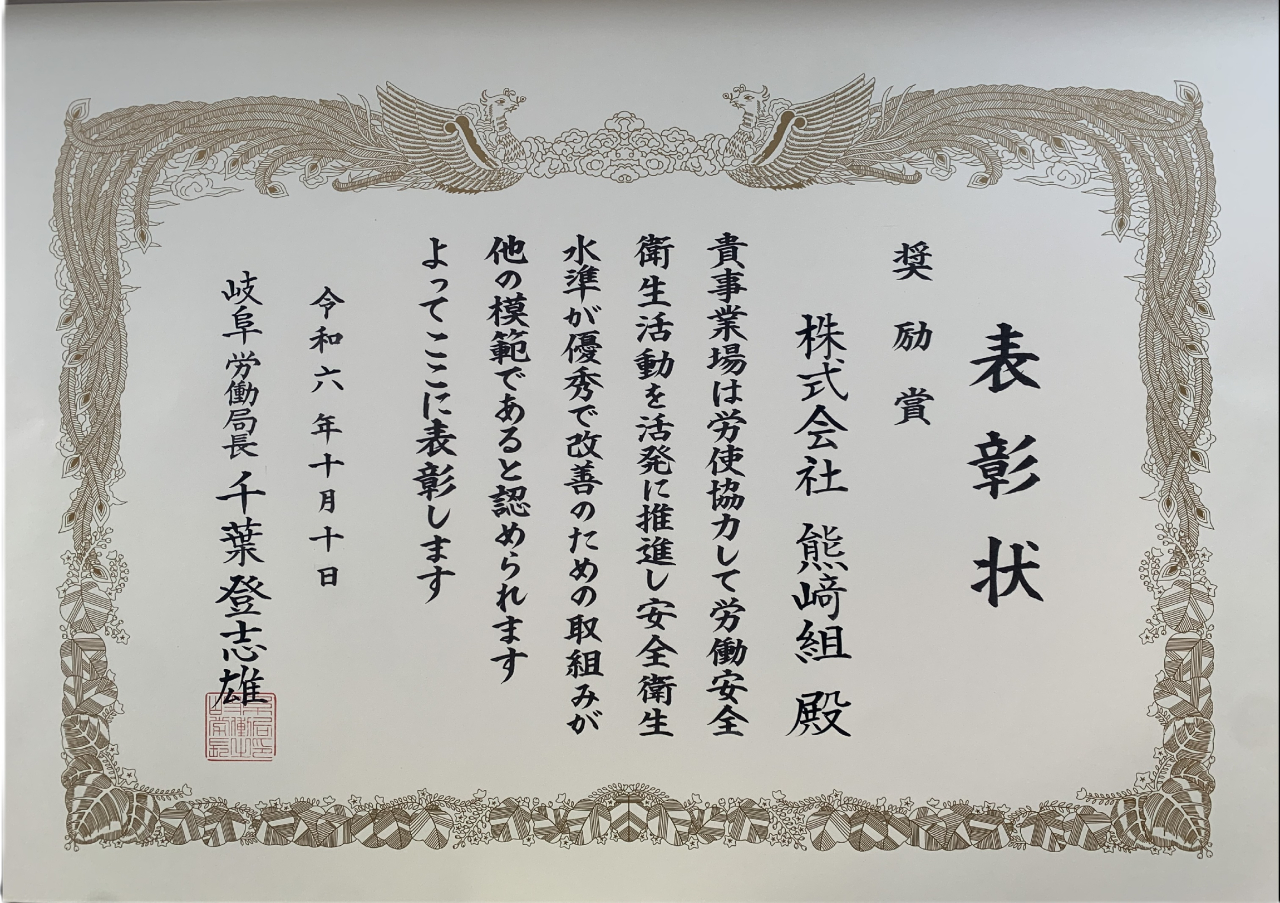 表彰状
奨励賞
株式会社 熊﨑組 殿
貴事業場は労使協力して労働安全
衛生活動を活発に推進し安全衛生
水準が優秀で改善のための取組みが
他の模範であると認められます
よってここに表彰します
令和六年十月十日
岐阜労働局長 千葉登志雄